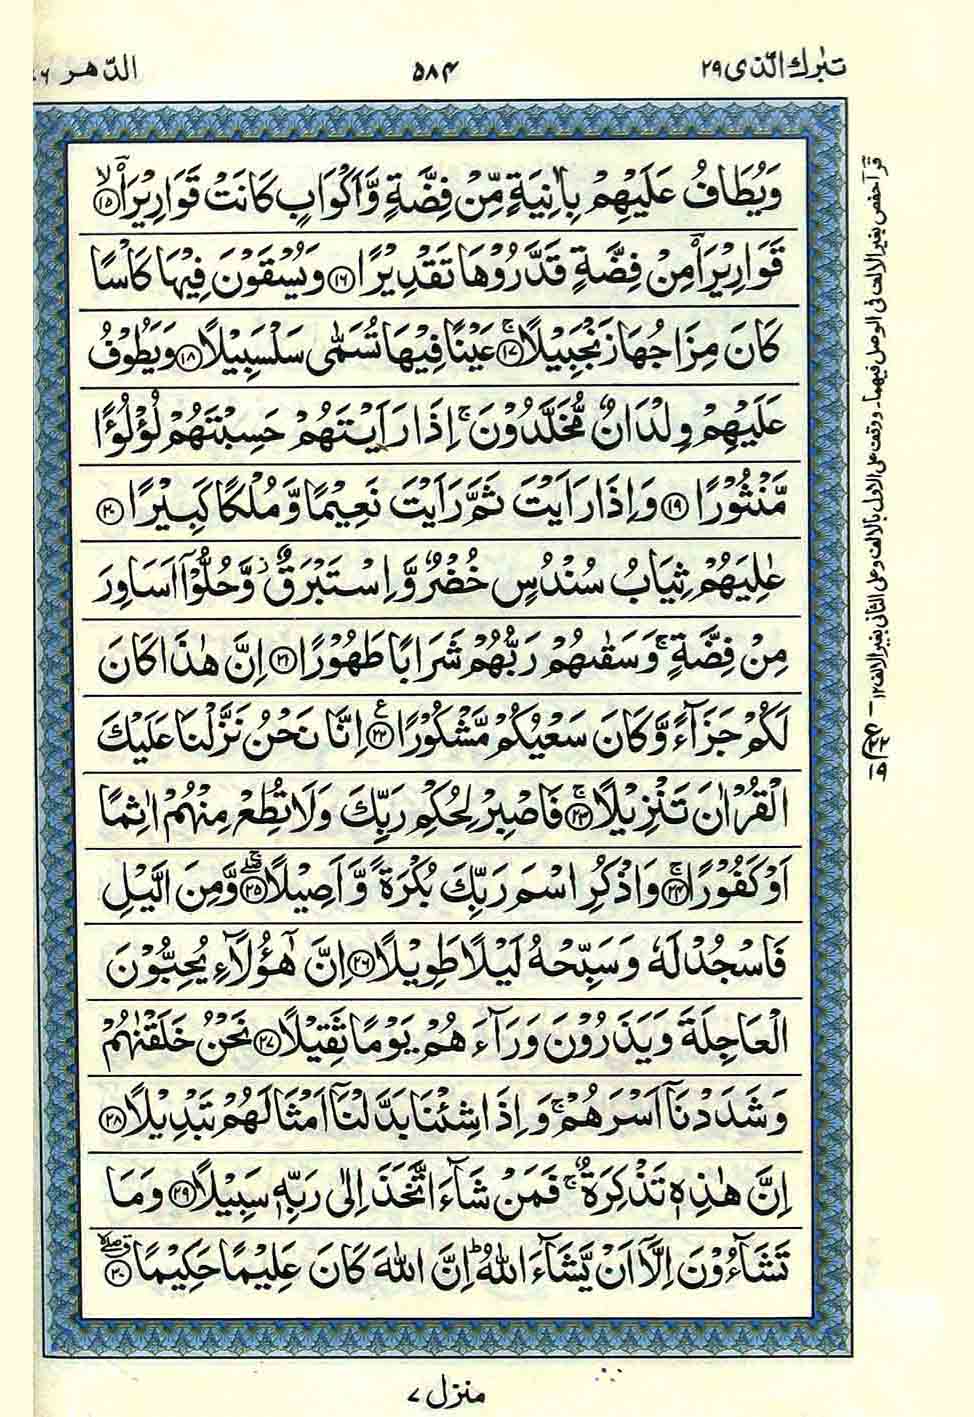 تبٰرك الّذى ٢٩
۵۸۴
الدّهر
وَيُطَافُ عَلَيْهِمْ بِاٰنِيَةٍ مِّنْ فِضَّةٍ وَّاَكْوَابٍ كَانَتْ قَوَارِيْرَا۠ ۙ‏﴿۱۵﴾
قَوَارِيْرَا۠ مِنْ فِضَّةٍ قَدَّرُوْهَا تَقْدِيْرًا ﴿۱۶﴾ وَيُسْقَوْنَ فِيْهَا كَاْسًا
كَانَ مِزَاجُهَا زَنْجَبِيْلًا ۚ ﴿۱۷﴾ عَيْنًا فِيْهَا تُسَمّٰى سَلْسَبِيْلًا ﴿۱۸﴾ وَيَطُوْفُ
عَلَيْهِمْ وِلْدَانٌ مُّخَلَّدُوْنَ ۚ اِذَا رَاَيْتَهُمْ حَسِبْتَهُمْ لُؤْلُؤًا
مَّنْثُوْرًا ﴿۱۹﴾ وَاِذَا رَاَيْتَ ثَمَّ رَاَيْتَ نَعِيْمًا وَّمُلْكًا كَبِيْرًا ﴿۲۰﴾
عٰلِيَهُمْ ثِيَابُ سُنْدُسٍ خُضْرٌ وَّاِسْتَبْرَقٌ ۫ وَّحُلُّوْۤا اَسَاوِرَ
مِنْ فِضَّةٍ ۚ وَسَقٰىهُمْ رَبُّهُمْ شَرَابًا طَهُوْرًا ﴿۲۱﴾ اِنَّ هٰذَا كَانَ
لَكُمْ جَزَآءً وَّكَانَ سَعْيُكُمْ مَّشْكُوْرًا ﴿۲۲﴾ع اِنَّا نَحْنُ نَزَّلْنَا عَلَيْكَ
الْقُرْاٰنَ تَنْزِيْلًا ۚ ﴿۲۳﴾ فَاصْبِرْ لِحُكْمِ رَبِّكَ وَلَا تُطِعْ مِنْهُمْ اٰثِمًا
اَوْ كَفُوْرًا ۚ ﴿۲۴﴾ وَاذْكُرِ اسْمَ رَبِّكَ بُكْرَةً وَّاَصِيْلًا ۖۚ ﴿۲۵﴾ وَّمِنَ الَّيْلِ
فَاسْجُدْ لَهٗ وَسَبِّحْهُ لَيْلًا طَوِيْلًا ﴿۲۶﴾ اِنَّ هٰۤؤُلَآءِ يُحِبُّوْنَ
الْعَاجِلَةَ وَيَذَرُوْنَ وَرَآءَهُمْ يَوْمًا ثَقِيْلًا ﴿۲۷﴾ نَحْنُ خَلَقْنٰهُمْ
وَشَدَدْنَاۤ اَسْرَهُمْ ۚ وَاِذَا شِئْنَا بَدَّلْنَاۤ اَمْثَالَهُمْ تَبْدِيْلًا ﴿۲۸﴾
اِنَّ هٰذِهٖ تَذْكِرَةٌ ۚ فَمَنْ شَآءَ اتَّخَذَ اِلٰى رَبِّهٖ سَبِيْلًا ﴿۲۹﴾ وَمَا
تَشَآءُوْنَ اِلَّاۤ اَنْ يَّشَآءَ اللّٰهُ ؕ اِنَّ اللّٰهَ كَانَ عَلِيْمًا حَكِيْمًا ﴿۳۰﴾
قرأ حفص بغير الالف فى الوصل فيهما ـ ووقف على الاول بالالف وعلى الثانى بغير الالف ١٢
منزل ۷